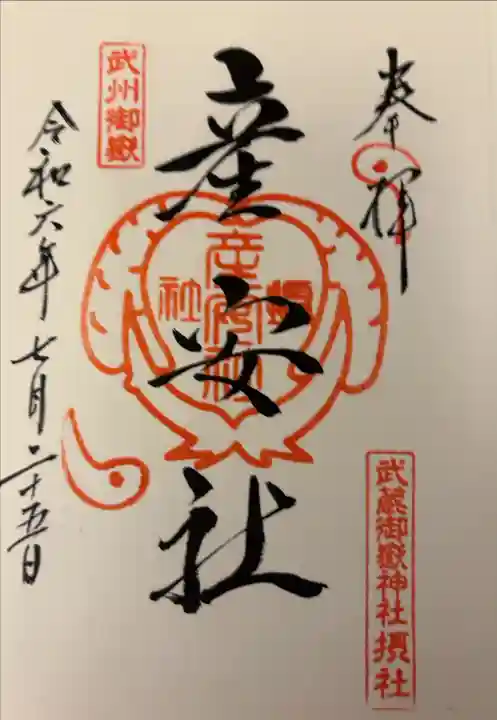 奉拝
武蔵御嶽神社摂社
産安社
摂
産安社
社
武州御嶽
令和六年七月二十五日